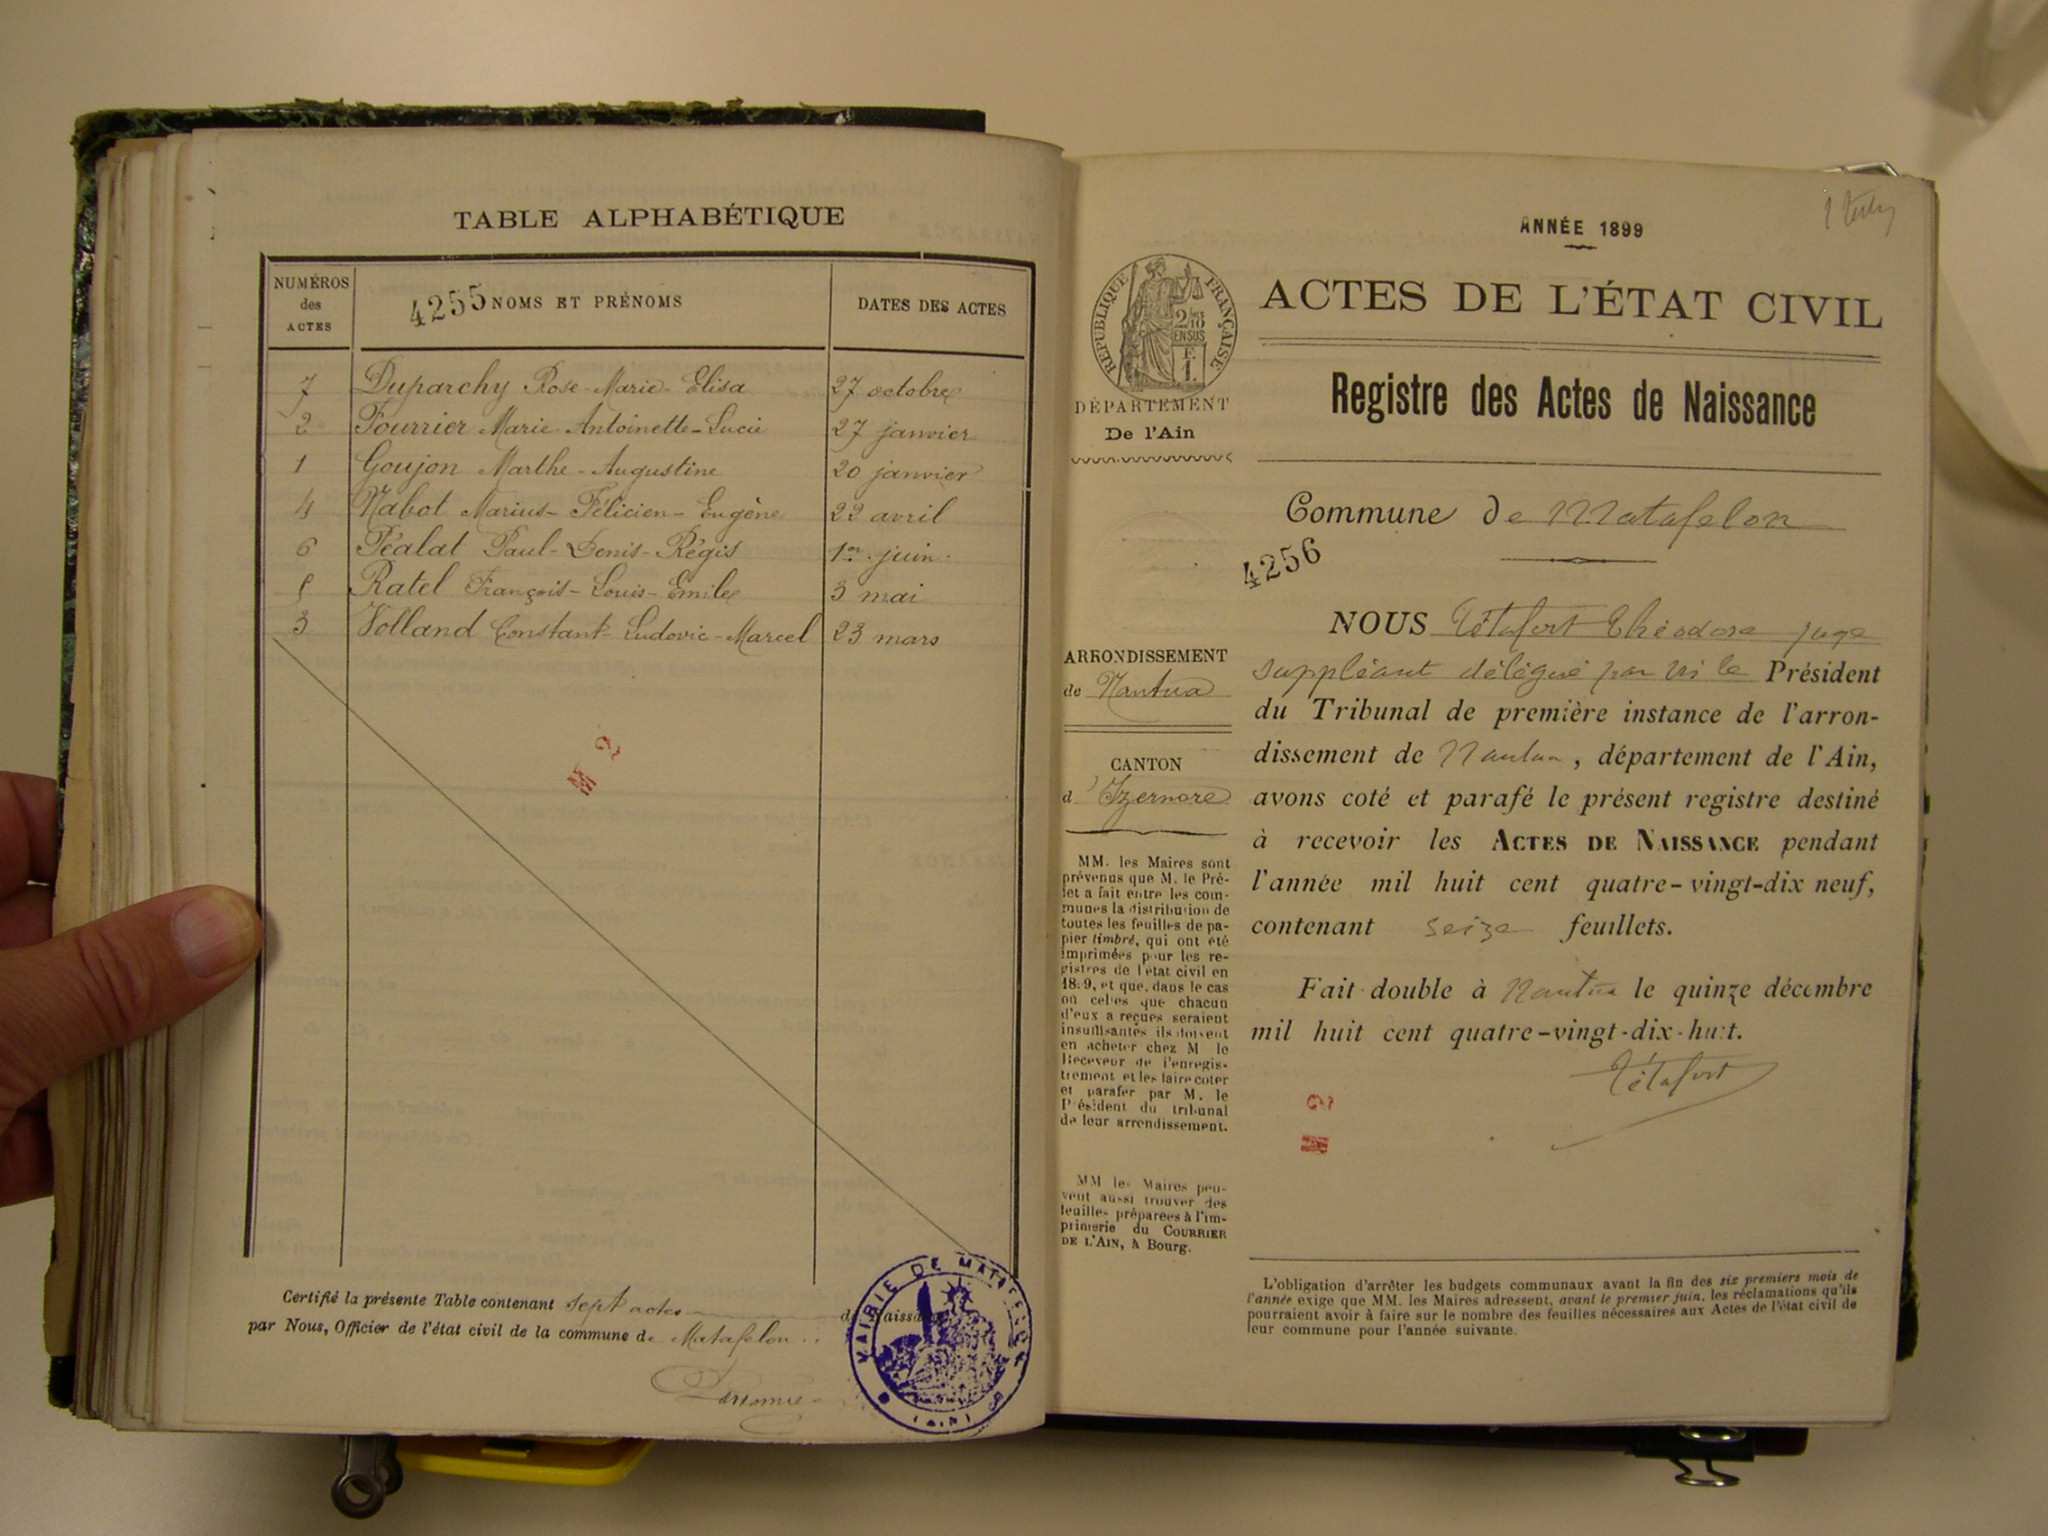 TABLE ALPHABÉTIQUE
NUMÉROS des ACTES
4255 NOMS ET PRÉNOMS
DATES DES ACTES
7 Duparchy Rose-Marie-Elisa 27 octobre
2 Fourrier Marie-Antoinette-Lucie 27 janvier
1 Goujon Marthe-Augustine 20 janvier
4 Nabot Marius-Félicien-Eugène 22 avril
6 Péalat Paul-Denis-Régis 1er juin
5 Ratel François-Louis-Emile 3 mai
3 Volland Constant-Ludovic-Marcel 23 mars
M 2
Certifié la présente Table contenant sept actes de Naissance
par Nous, Officier de l'état civil de la commune de Matafelon
MAIRIE DE MATAFELON
(AIN)
ANNÉE 1899
RÉPUBLIQUE FRANÇAISE
2/10 EN SUS
F 1
ACTES DE L'ÉTAT CIVIL
Registre des Actes de Naissance
DÉPARTEMENT
De l'Ain
Commune de Matafelon
4256
ARRONDISSEMENT
de Nantua
CANTON
d'Izernore
MM. les Maires sont
prévenus que M. le Pré-
fet a fait entre les com-
munes la distribution de
toutes les feuilles de pa-
pier timbré, qui ont été
imprimées pour les re-
gistres de l'état civil en
1899, et que, dans le cas
où celles que chacun
d'eux a reçues seraient
insuffisantes ils doivent
en acheter chez M. le
Receveur de l'enregis-
trement et les faire coter
et parafer par M. le
Président du tribunal
de leur arrondissement.
MM les Maires peu-
vent aussi trouver des
feuilles préparées à l'im-
primerie du COURRIER
DE L'AIN, à Bourg.
NOUS Tétafort Théodore juge
suppléant délégué par Mr le Président
du Tribunal de première instance de l'arron-
dissement de Nantua, département de l'Ain,
avons coté et parafé le présent registre destiné
à recevoir les ACTES DE NAISSANCE pendant
l'année mil huit cent quatre-vingt-dix neuf,
contenant seize feuillets.
Fait double à Nantua le quinze décembre
mil huit cent quatre-vingt-dix-huit.
Tétafort
M 2
L'obligation d'arrêter les budgets communaux avant la fin des six premiers mois de
l'année exige que MM. les Maires adressent, avant le premier juin, les réclamations qu'ils
pourraient avoir à faire sur le nombre des feuilles nécessaires aux Actes de l'état civil de
leur commune pour l'année suivante.